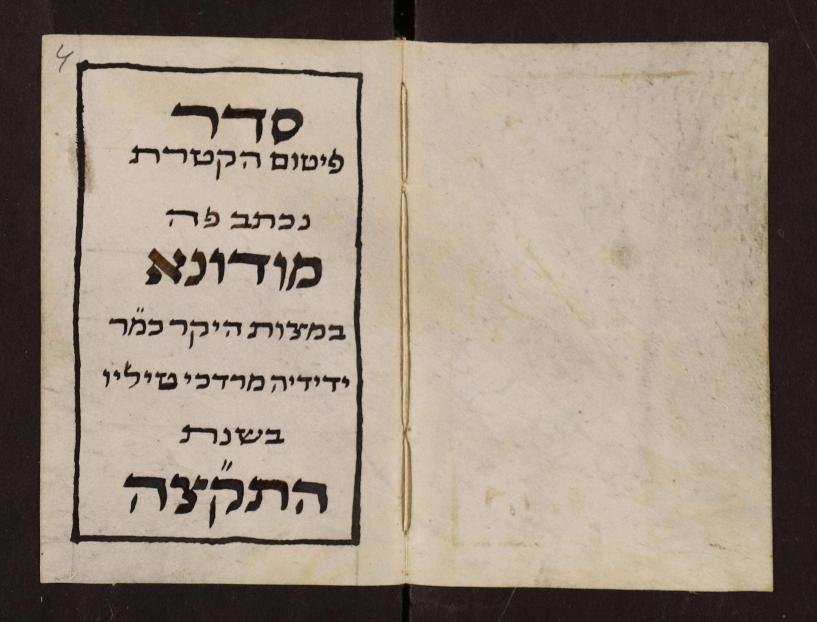 4
סדר
פיטום הקטרת
נכתב פה
מודונא
במצות היקר כמ״ר
ידידיה מרדכי טיליו
בשנת
התק״צה